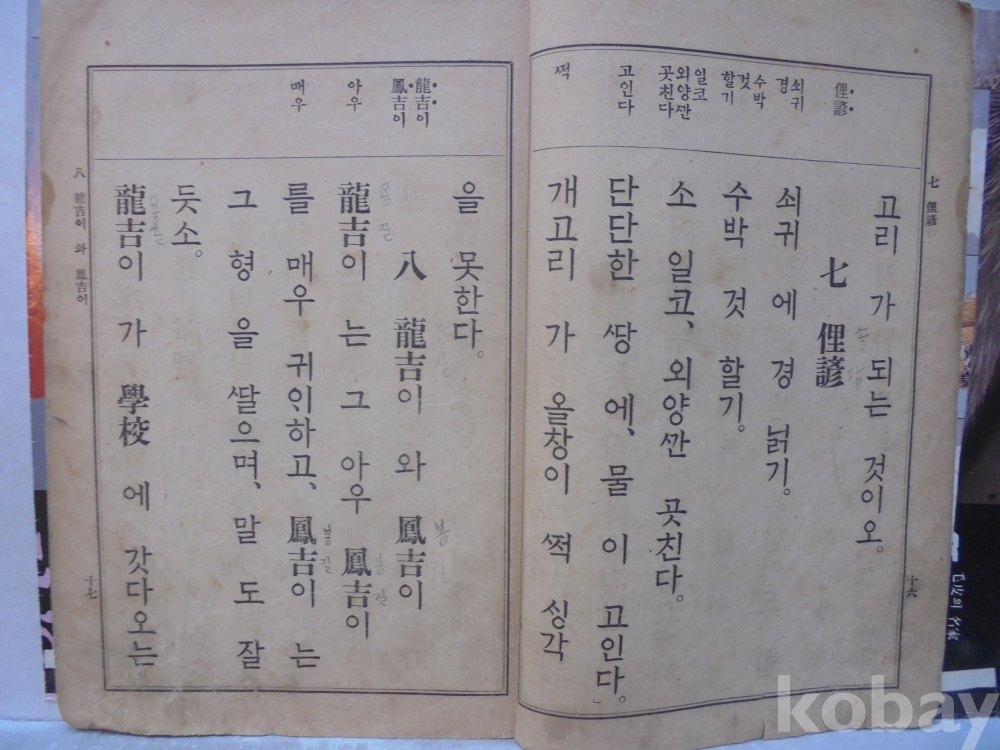 俚諺
쇠귀
경
수박
것
할기
일코
외양깐
곳친다
고인다
쩍
고리 가 되는 것이오。
七 俚諺
쇠귀 에 경 닑기。
수박 것 할기。
소 일코、외양깐 곳친다。
단단한 쌍 에、물 이 고인다。」
개고리 가 올창이 쩍 싱각
七 俚諺
十六
龍吉이
鳳吉이
아우
매우
을 못한다。
八 龍吉이 와 鳳吉이
龍吉이 는 그 아우 鳳吉이
를 매우 귀이하고、鳳吉이 는
그 형 을 쌀으며、말 도 잘
듯소。
龍吉이 가 學校 에 갓다오는
八 龍吉이 와 鳳吉이
十七
kobay